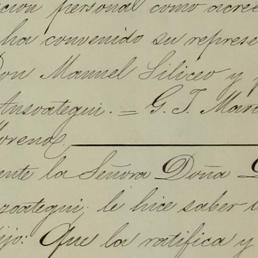 cion personal como acree
ha convenido su represe
Don Manuel Siliceo y p
Ansoategui. = G. T. Mar
Moreno,
ente la Señora Doña
zoategui, le hice saber
ijo: Que la ratifica y